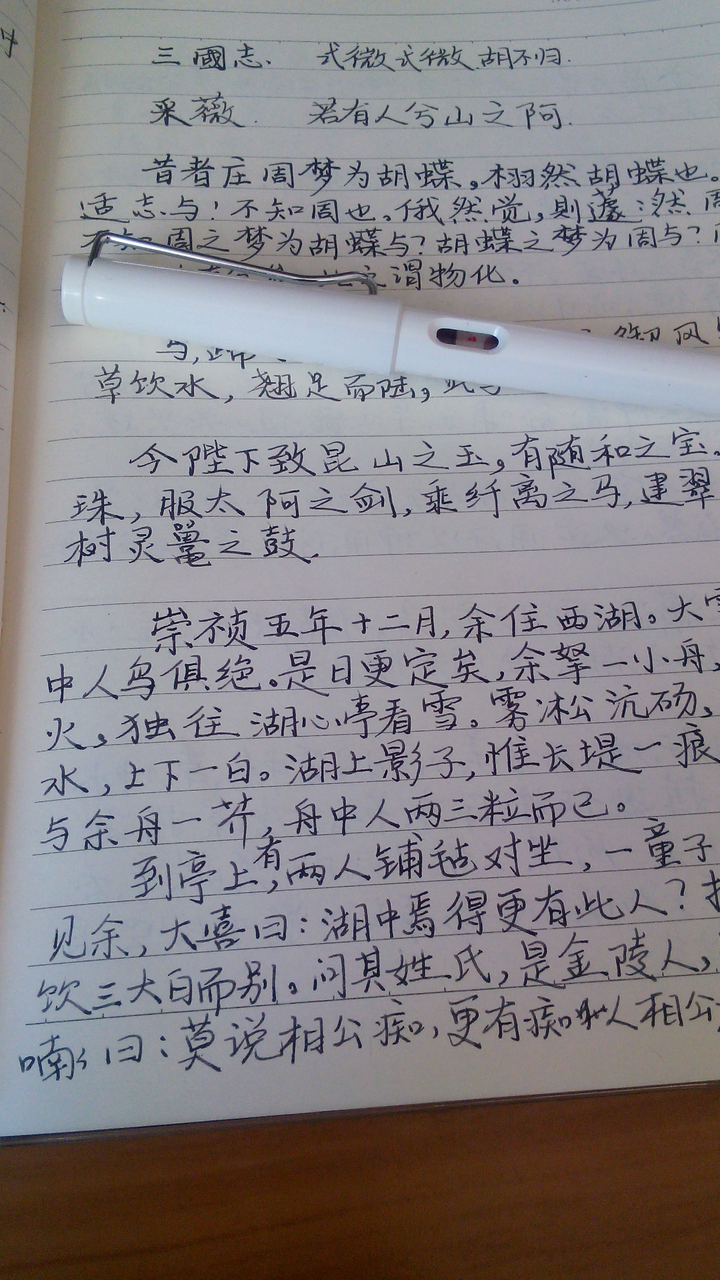 三國志. 式微式微胡不归.
采薇. 若有人兮山之阿.
昔者庄周梦为胡蝶。栩然胡蝶也。
适志与!不知周也。俄然觉,则蘧然周
不知周之梦为胡蝶与?胡蝶之梦为周与?
之谓物化。
马,蹄
风
草饮水,翘足而陆,此
今陛下致昆山之玉,有随和之宝。
珠,服太阿之剑,乘纤离之马,建翠
树灵鼍之鼓.
崇祯五年十二月,余住西湖。大雪
中人鸟俱绝。是日更定矣,余拏一小舟,
火,独往湖心亭看雪。雾凇沆砀,
水,上下一白。湖上影子,惟长堤一痕
与余舟一芥,舟中人两三粒而已。
到亭上,有两人铺毡对坐,一童子
见余,大喜曰:湖中焉得更有此人?
饮三大白而别。问其姓氏,是金陵人,
喃喃曰:莫说相公痴,更有痴似相公